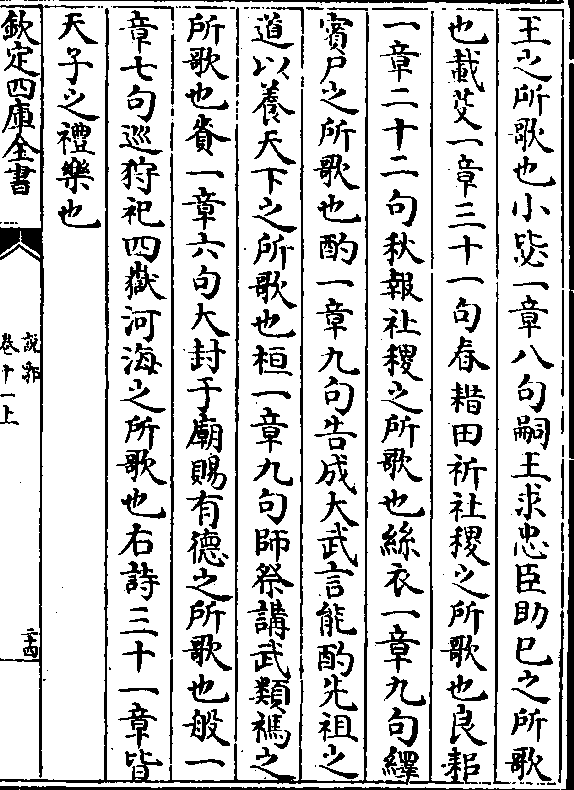 王之所歌也小毖一章八句嗣王求忠臣助已之所歌
也載芟一章三十一句春耤田祈社稷之所歌也良耜
一章二十二句秋報社稷之所歌也絲衣一章九句繹
賓尸之所歌也酌一章九句告成大武言能酌先祖之
道以養天下之所歌也桓一章九句師祭講武類禡之
所歌也賚一章六句大封于廟賜有德之所歌也般一
章七句巡狩祀四嶽河海之所歌也右詩三十一章皆
天子之禮樂也
欽定四庫全書
說郛
卷十一上
二十四